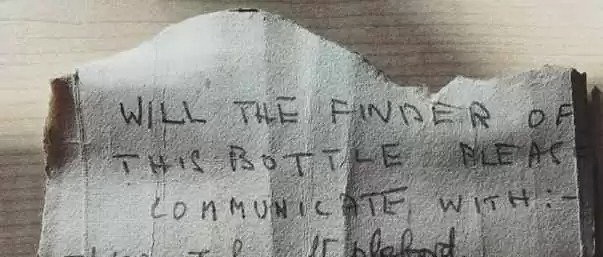 WILL THE FINDER OF
THIS BOTTLE PLEASE
COMMUNICATE WITH:-